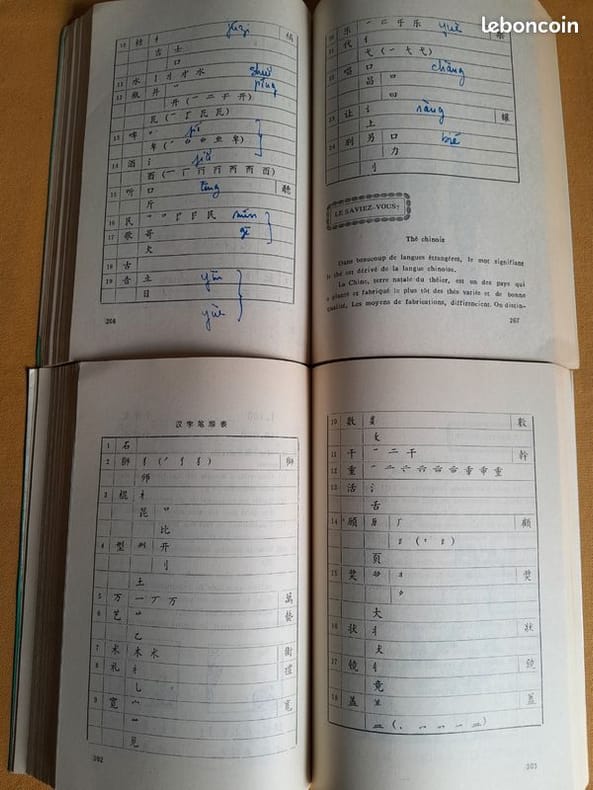 leboncoin
10 桔 木 júzi 橘
吉 士
口
11 水 shuǐ
12 瓶 并 丷 píng
开 (一 二 于 开)
瓦
13 啤 口 pí
卑
14 酒 氵 jiǔ
酉 (一 丆 丙 西 酉)
15 听 口 tīng 聽
斤
16 民 mín
17 歌 哥 gē
欠
18 古
19 音 立 yīn
日 yuè
266
20 乐 yuè 樂
21 代 亻
弋 (一 弋 弋)
22 唱 口 chàng
昌 日
曰
23 让 讠 ràng 讓
上
24 别 另 口 bié
力
刂
LE SAVIEZ-VOUS?
Thé chinois
Dans beaucoup de langues étrangères, le mot signifiant
le thé est dérivé de la langue chinoise.
La Chine, terre natale du théier, est un des pays qui
a planté et fabriqué le plus tôt des thés variés et de bonne
qualité. Les moyens de fabrications, différencient. On distin-
267
汉字笔顺表
1 石
2 狮 犭 獅
师
3 棍 木
昆 日
比
4 型 刑 开
刂
土
5 万 一 丆 万 萬
6 艺 艹 藝
乙
7 术 木 术 術
8 礼 礻 禮
乚
9 宽 宀 寬
艹
见
302
10 数 娄 數
攵
11 干 一 二 干 幹
12 重 重
13 活 氵
舌
14 顾 厄 厂 顧
頁
15 奖 奬
大
16 状 丬 狀
犬
17 镜 钅 鏡
竟
18 盖 蓋
皿
303